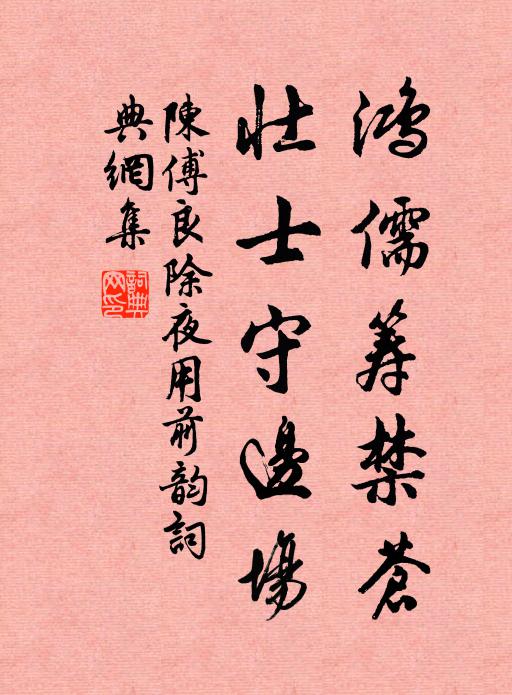 鴻儒籌禁蒼
壯士守邊場
陳傅良除夜用前韵詞
典網集
詞典网印